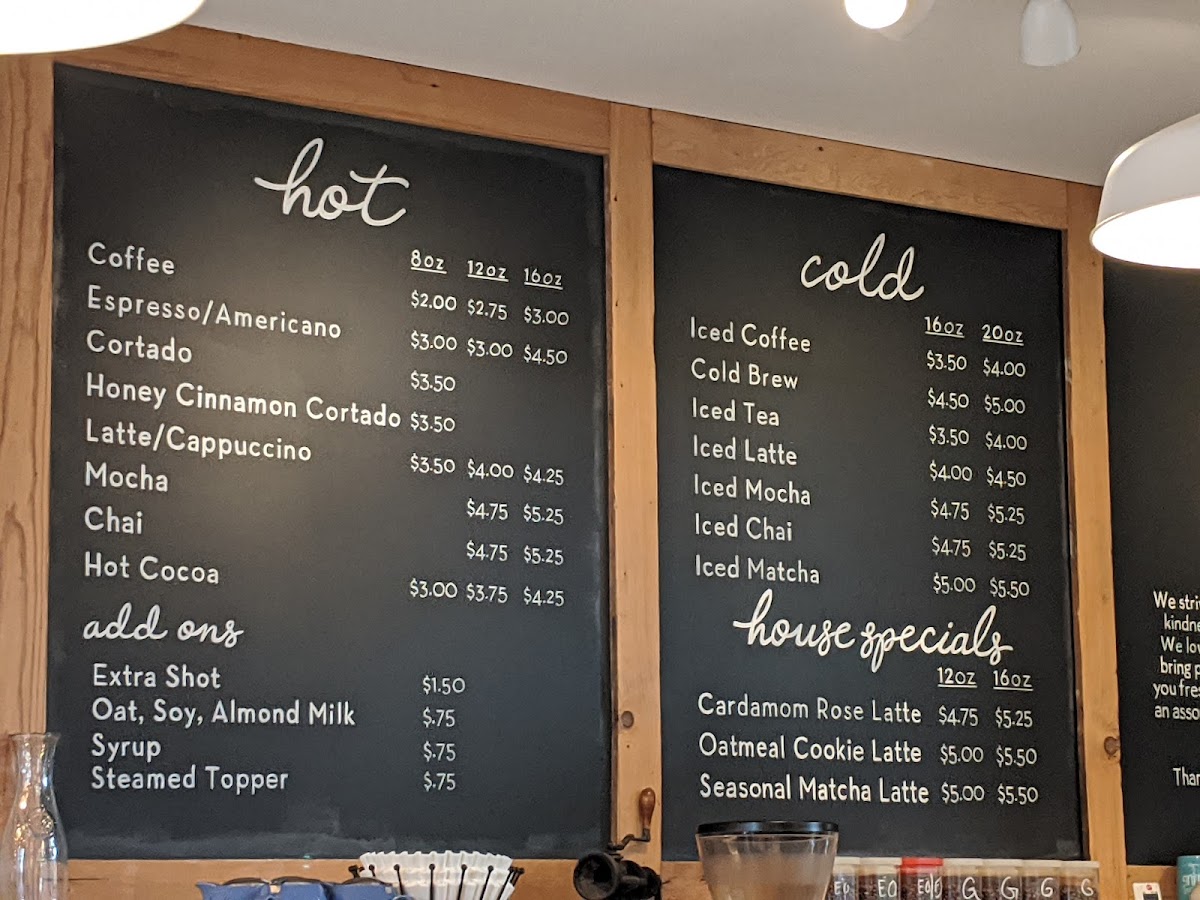 hot
8oz 12oz 16oz
Coffee $2.00 $2.75 $3.00
Espresso/Americano $3.00 $3.00 $4.50
Cortado $3.50
Honey Cinnamon Cortado $3.50
Latte/Cappuccino $3.50 $4.00 $4.25
Mocha $4.75 $5.25
Chai $4.75 $5.25
Hot Cocoa $3.00 $3.75 $4.25
add ons
Extra Shot $1.50
Oat, Soy, Almond Milk $.75
Syrup $.75
Steamed Topper $.75
cold
16oz 20oz
Iced Coffee $3.50 $4.00
Cold Brew $4.50 $5.00
Iced Tea $3.50 $4.00
Iced Latte $4.00 $4.50
Iced Mocha $4.75 $5.25
Iced Chai $4.75 $5.25
Iced Matcha $5.00 $5.50
house specials
12oz 16oz
Cardamom Rose Latte $4.75 $5.25
Oatmeal Cookie Latte $5.00 $5.50
Seasonal Matcha Latte $5.00 $5.50
We
We
bring
you
an
EO EO G G G G